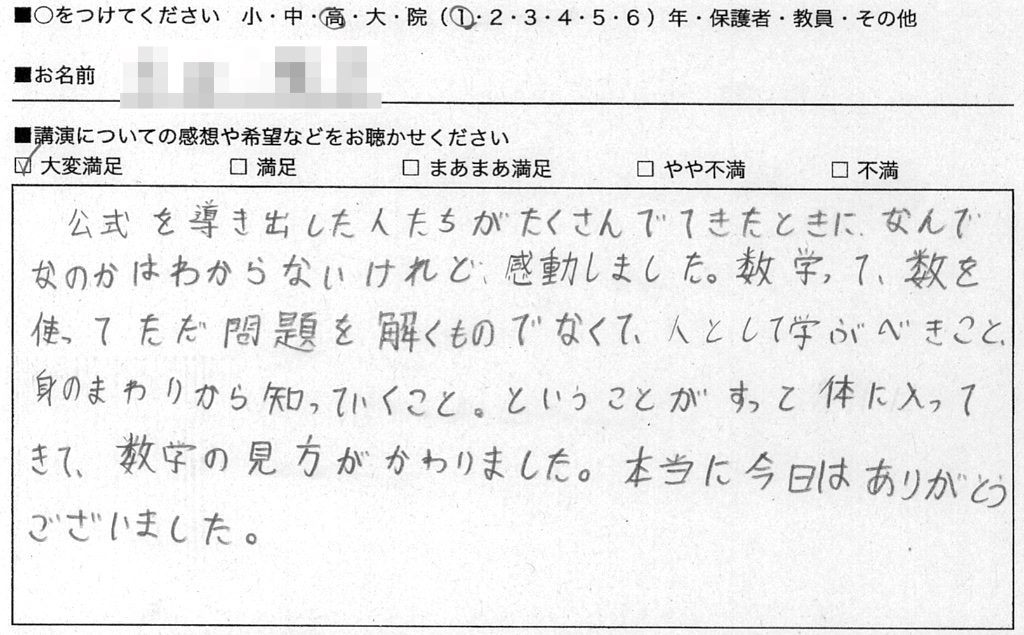 ■○をつけてください 小・中・高・大・院（1・2・3・4・5・6）年・保護者・教員・その他
■お名前
■講演についての感想や希望などをお聴かせください
☑ 大変満足 □ 満足 □ まあまあ満足 □ やや不満 □ 不満
公式を導き出した人たちがたくさんでてきたときに、なんで
なのかはわからないけれど、感動しました。数学って、数を
使ってただ問題を解くものでなくて、人として学ぶべきこと、
身のまわりから知っていくこと。ということがすっと体に入って
きて、数学の見方がかわりました。本当に今日はありがとう
ございました。